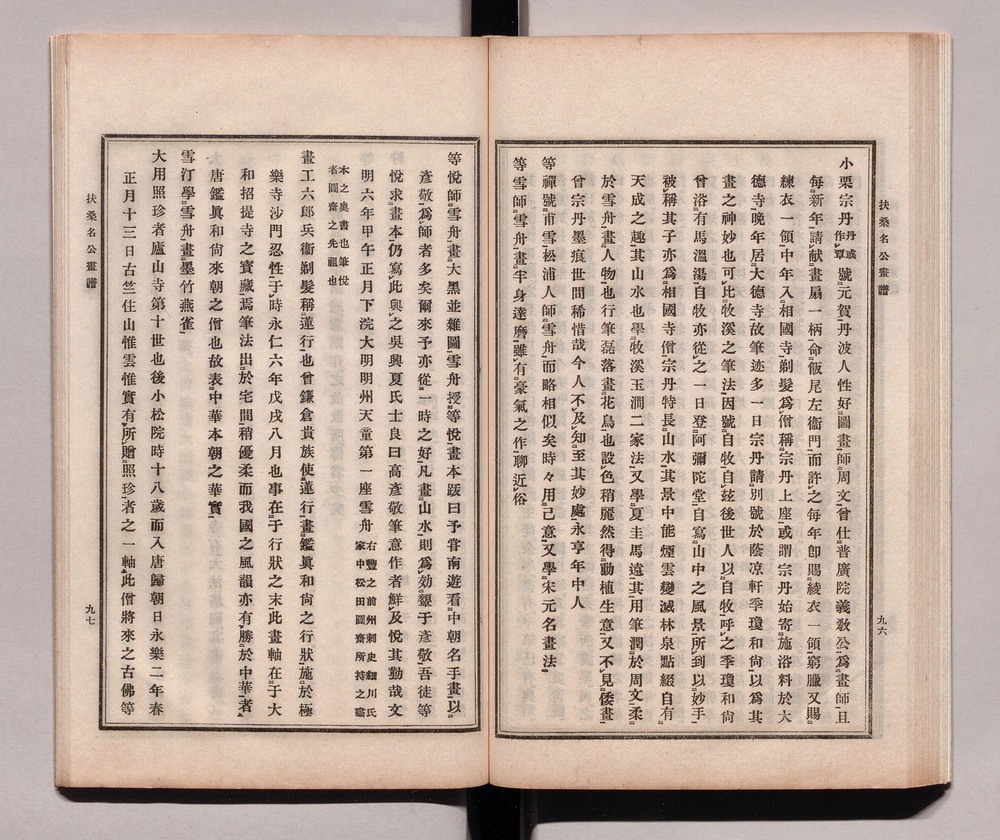 扶桑名公畫譜
九六
小栗宗丹丹或作單號元賀丹波人性好圖畫師周文曾仕普廣院義敎公爲畫師且
每新年請献畫扇一柄命飯尾左衞門而許之每年卽賜綾衣一領窮臘又賜
練衣一領中年入相國寺剃髮爲僧稱宗丹上座或謂宗丹始寄施浴料於大
德寺晚年居大德寺故筆迹多一日宗丹請別號於蔭凉軒季瓊和尙以爲其
畫之神妙也可比牧溪之筆法因號自牧自玆後世人以自牧呼之季瓊和尙
曾浴有馬溫湯自牧亦從之一日登阿彌陀堂自寫山中之風景所到以妙手
被稱其子亦爲相國寺僧宗丹特長山水其景中能煙雲變滅林泉點綴自有
天成之趣其山水也學牧溪玉澗二家法又學夏圭馬遠其用筆潤於周文柔
於雪舟畫人物也行筆磊落畫花鳥也設色稍麗然得動植生意又不見倭畫
曾宗丹墨痕世間稀惜哉今人不及知至其妙處永享年中人
等禪號甫雪松浦人師雪舟而略相似矣時々用己意又學宋元名畫法
等雪師雪舟畫半身達磨雖有豪氣之作聊近俗
等悅師雪舟畫大黑並雜圖雪舟授等悅畫本跋曰予甞南遊看中朝名手畫以
彥敬爲師者多矣爾來予亦從一時之好凡畫山水則爲効顰于彥敬吾徒等
悅求畫本仍寫此與之吳興夏氏士良曰高彥敬筆意作者鮮及悅其勤哉文
明六年甲午正月下浣大明明州天童第一座雪舟右豐之前州刺史細川氏家中松田圓齋所持之
本之奧書也筆悅者圓齋之先祖也
畫工六郎兵衞剃髮稱蓮行也曾鎌倉貴族使蓮行畫鑑眞和尙之行狀施於極
樂寺沙門忍性于時永仁六年戊戌八月也事在于行狀之末此畫軸在于大
和招提寺之寶藏焉筆法出於宅間稍優柔而我國之風韻亦有勝於中華者
唐鑑眞和尙來朝之僧也故表中華本朝之華實
雪汀學雪舟畫墨竹燕雀
大用照珍者廬山寺第十世也後小松院時十八歲而入唐歸朝日永樂二年春
正月十三日古竺住山惟雲惟實有所贈照珍者之一軸此僧將來之古佛等
扶桑名公畫譜
九七